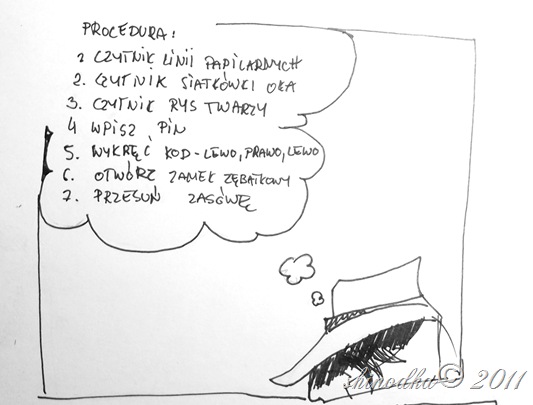 PROCEDURA:
1 CZYTNIK LINII PAPILARNYCH
2. CZYTNIK SIATKÓWKI OKA
3. CZYTNIK RYS TWARZY
4 WPISZ PIN
5. WYKRĘĆ KOD-LEWO, PRAWO, LEWO
6. OTWÓRZ ZAMEK ZĘBATKOWY
7. PRZESUŃ ZASÓWĘ
© 2011